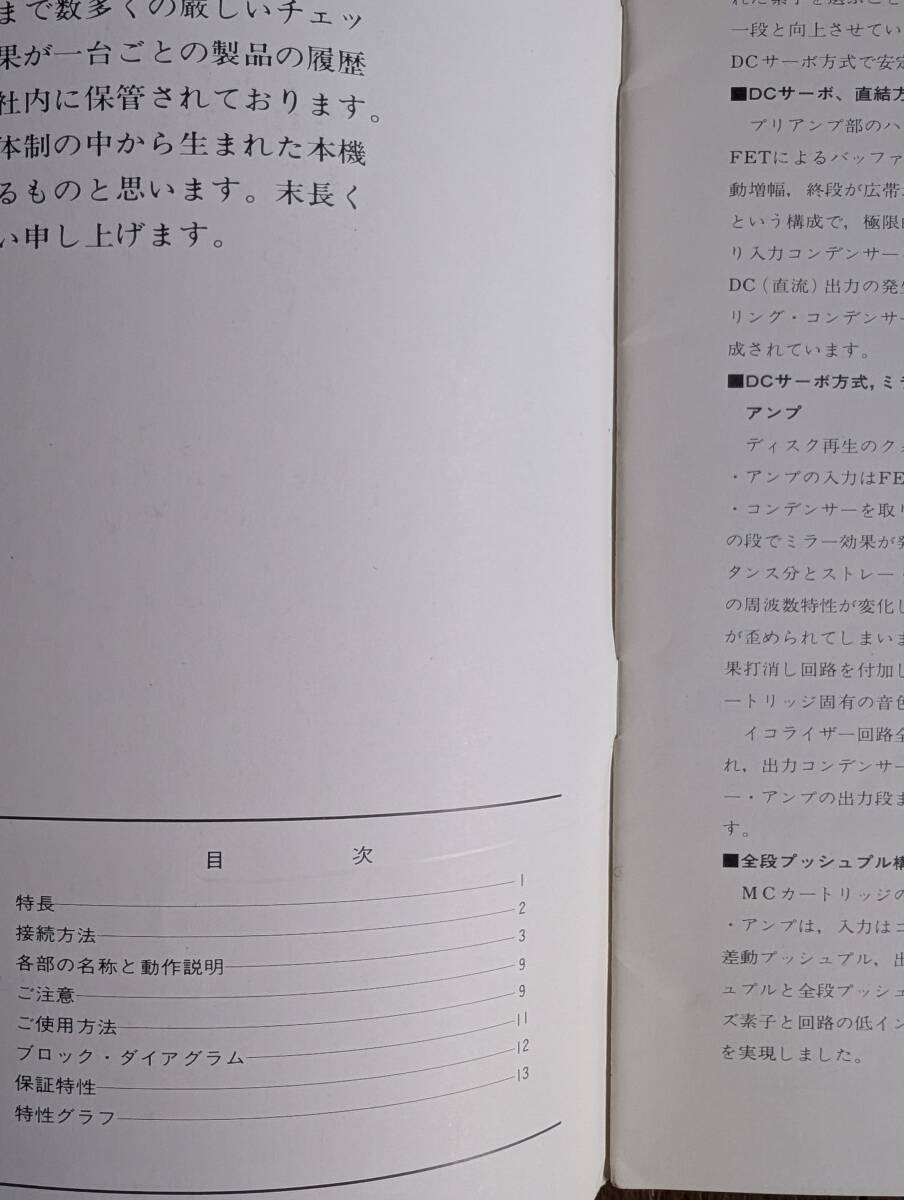 まで数多くの厳しいチェッ
果が一台ごとの製品の履歴
社内に保管されております。
体制の中から生まれた本機
るものと思います。末長く
い申し上げます。
目 次
特長 1
接続方法 2
各部の名称と動作説明 3
ご注意 9
ご使用方法 9
ブロック・ダイアグラム 11
保証特性 12
特性グラフ 13
れた素子を選ぶこと
一段と向上させてい
DCサーボ方式で安定
■DCサーボ、直結方
プリアンプ部のハ
FETによるバッファ
動増幅，終段が広帯
という構成で，極限
リ入力コンデンサー
DC（直流）出力の発生
リング・コンデンサー
成されています。
■DCサーボ方式，ミラ
アンプ
ディスク再生のクォ
・アンプの入力はFE
・コンデンサーを取り
の段でミラー効果が発
タンス分とストレー
の周波数特性が変化し
が歪められてしまいま
果打消し回路を付加し
ートリッジ固有の音色
イコライザー回路全
れ，出力コンデンサー
ー・アンプの出力段ま
す。
■全段プッシュプル構
MCカートリッジの
・アンプは，入力はコ
差動プッシュプル，出
ュプルと全段プッシュ
ズ素子と回路の低イン
を実現しました。